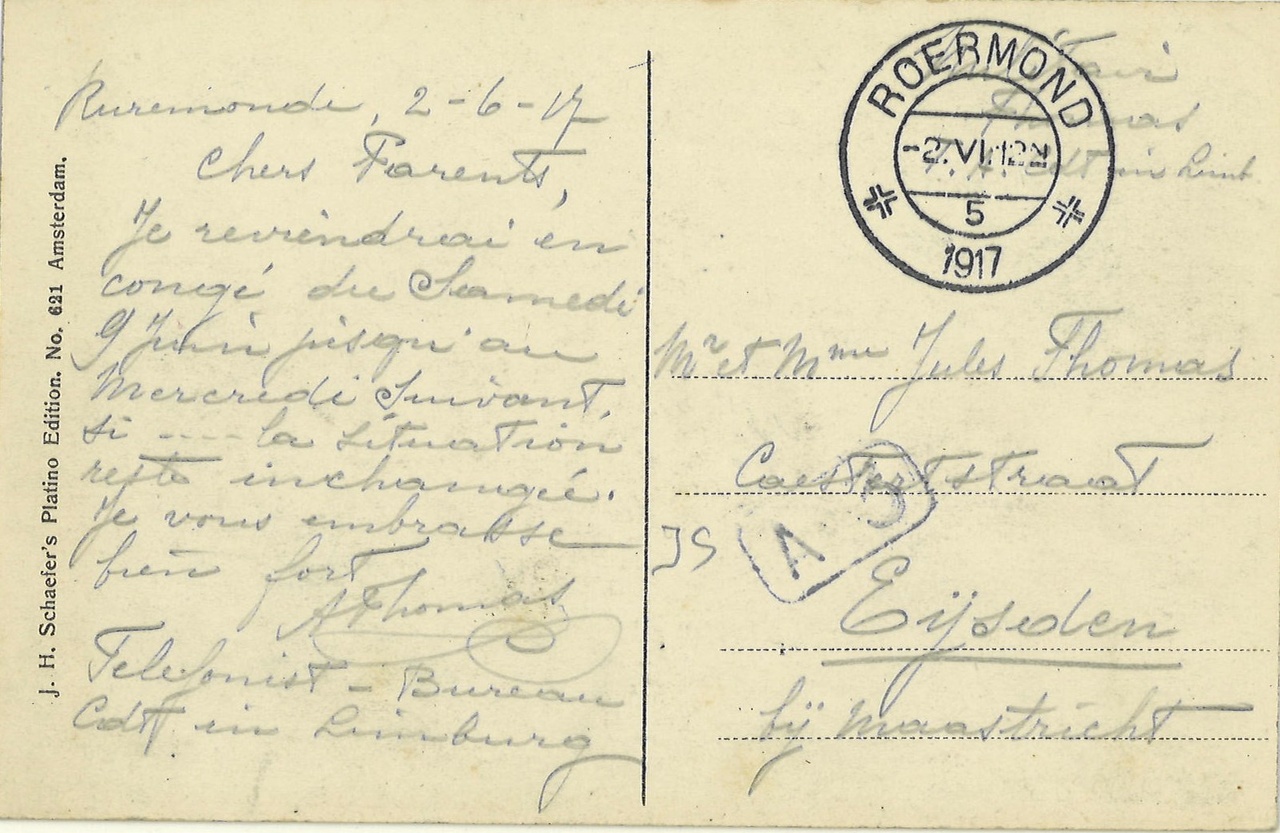 J. H. Schaefer's Platino Edition. No. 621 Amsterdam.
Ruremonde, 2-6-17
Chers Parents,
Je reviendrai en
congé du Samedi
9 Juin jusqu'au
Mercredi Suivant,
si ---- la situation
reste inchangée.
Je vous embrasse
bien fort
AThomas
Telefonist - Bureau
Cdt in Limburg
Militair
Thomas
Cdt in Limb
ROERMOND
-2.VI.12
5
1917
Mr et Mme Jules Thomas
Caestertstraat
JS
A
Eijsden
bij Maastricht